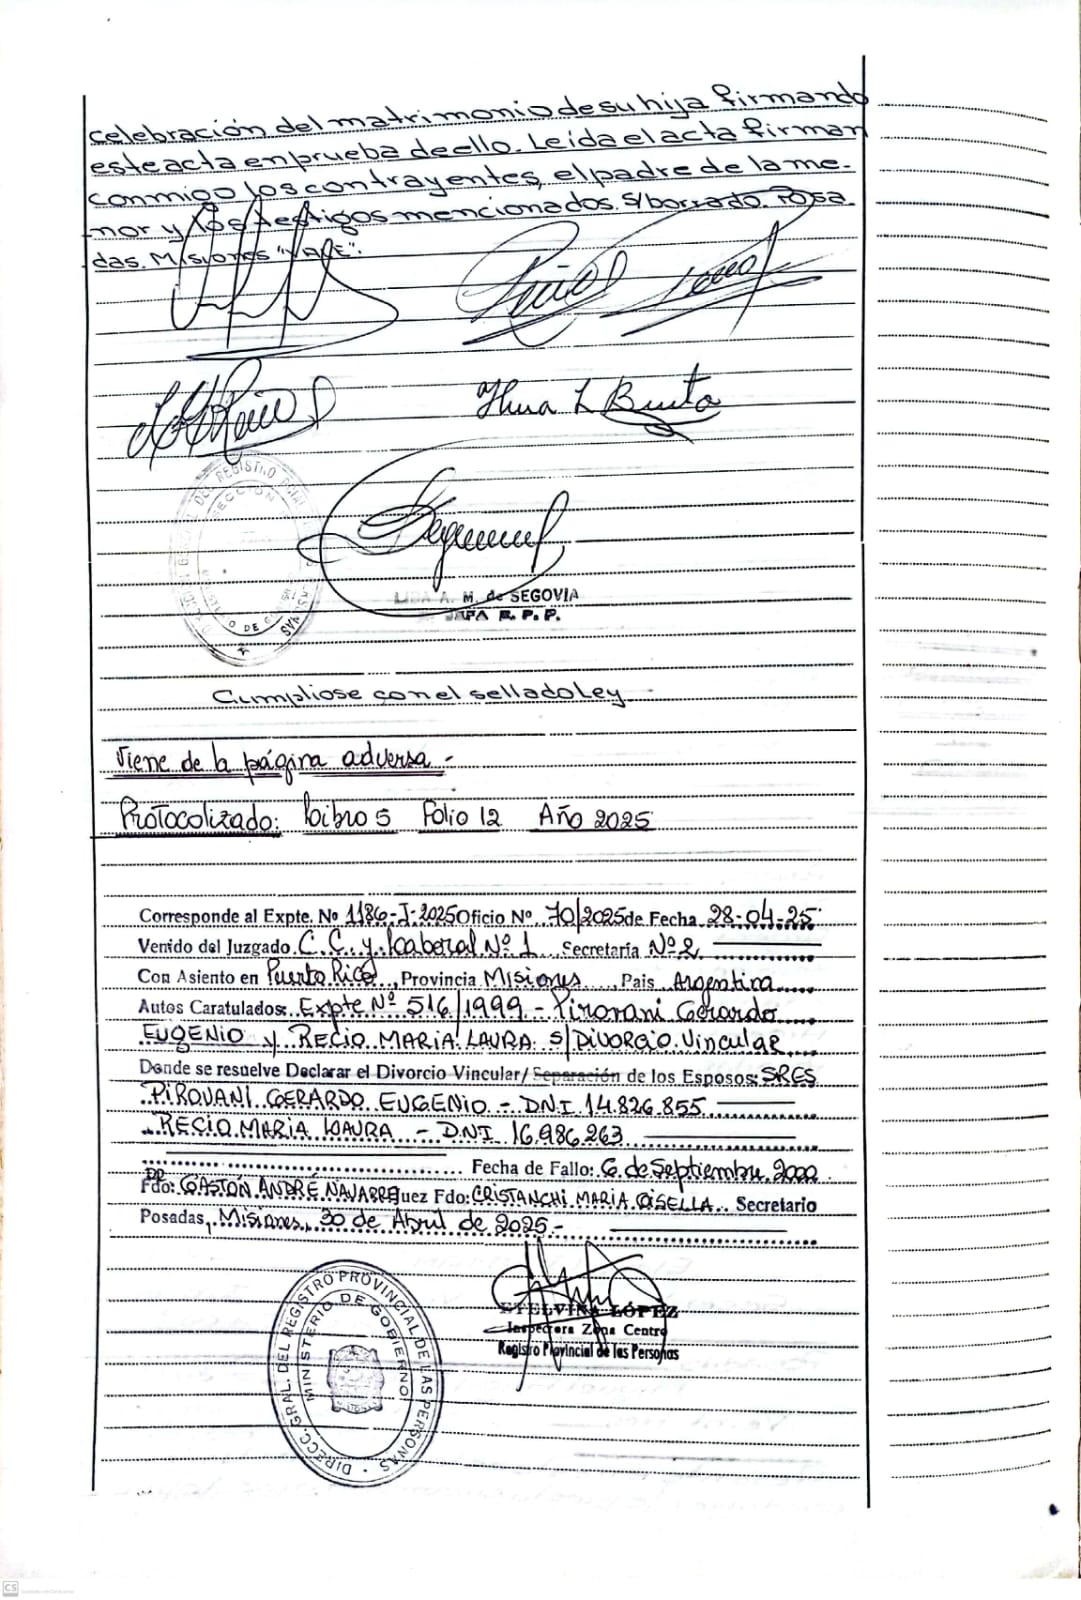 celebración del matrimonio de su hija firmando
este acta en prueba de ello. Leída el acta firman
conmigo los contrayentes, el padre de la me-
nor y los testigos mencionados. S/borrado. Posa
das. Misiones "VALE".
M. de SEGOVIA
JEFA R. P. P.
Cumpliose con el sellado Ley
Viene de la página adversa -
Protocolizado: Libro 5 Folio 12 Año 2025
Corresponde al Expte. Nº 1186-J-2025 Oficio Nº 70/2025 de Fecha 28-04-25
Venido del Juzgado C.C. y Laboral Nº 1 Secretaría Nº 2
Con Asiento en Puerto Rico, Provincia Misiones, Pais Argentina
Autos Caratulados: Expte Nº 516/1999 - Pirovani Gerardo
EUGENIO y RECIO MARIA LAURA S/DIVORCIO Vincular
Donde se resuelve Declarar el Divorcio Vincular/ Separación de los Esposos: SRES
PIROVANI GERARDO EUGENIO - DNI 14.826.855
RECIO MARIA LAURA - DNI 16.986.263
Fecha de Fallo: 6 de Septiembre 2000
DR
Fdo: GASTÓN ANDRÉ NAVARR Juez Fdo: CRISTANCHI MARIA GISELLA Secretario
Posadas, Misiones, 30 de Abril de 2025 -
ETELVINA LÓPEZ
Inspectora Zona Centro
Registro Provincial de las Personas
DIRECC. GRAL. DEL REGISTRO PROVINCIAL DE LAS PERSONAS
MINISTERIO DE GOBIERNO
CS